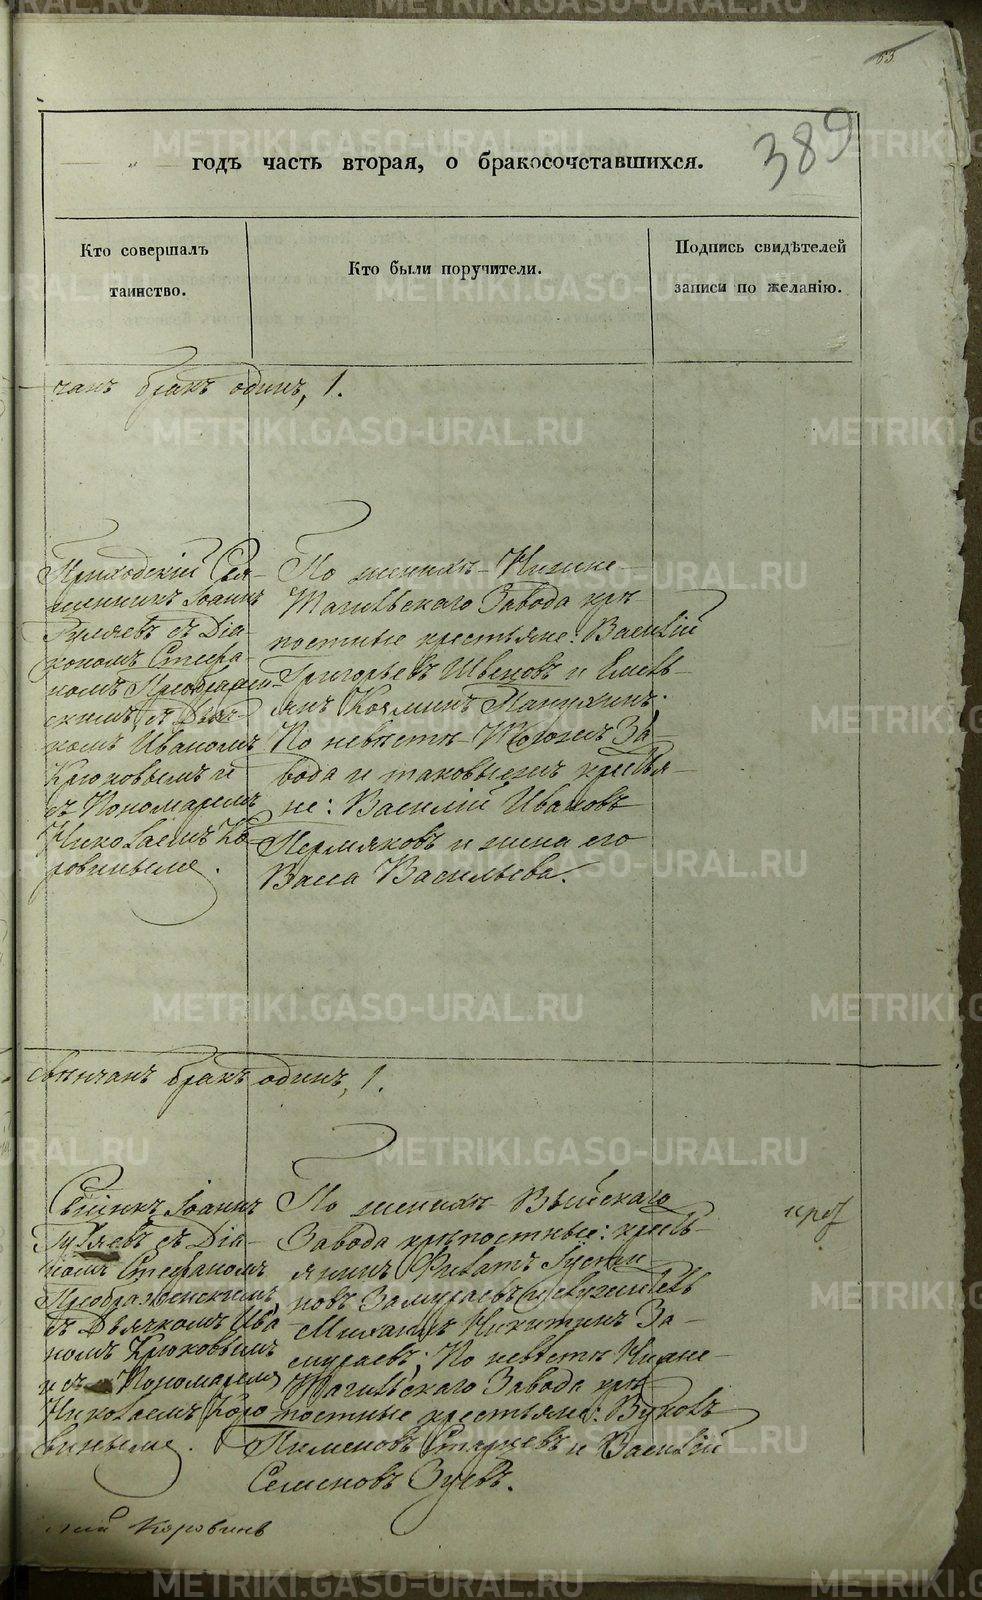 63
389
годъ часть вторая, о бракосочетавшихся.
Кто совершалъ
таинство.
Кто были поручители.
Подпись свидѣтелей
записи по желанію.
чанъ бракъ одинъ, 1.
Приходскій Свя-
щенникъ Іоаннъ
Гуляевъ съ Діа-
кономъ Стефа-
номъ Преображен-
скимъ, съ Дьяч-
комъ Иваномъ
Крюковымъ и
съ Пономаремъ
Николаемъ Ко-
ровинымъ.
По женихѣ Нижне-
Тагильскаго Завода крѣ
постные крестьяне: Василій
Григорьевъ Швецовъ и Емель-
янъ Козминъ
По невѣстѣ Тогожъ За-
вода и таковыежъ крестья-
не: Василій Ивановъ
Пермяковъ и жена его
Васса Васильева.
свѣнчанъ бракъ одинъ, 1.
Сщнникъ Іоаннъ
Гуляевъ съ Діа-
комъ Стефаномъ
Преображенскимъ,
съ Дьячкомъ Ива
номъ Крюковымъ
и съ Пономаремъ
Николаемъ Коро-
винымъ.
По женихѣ Выйскаго
Завода крѣпостные: кресть-
янинъ Филатъ Густи
новъ Замураевъ, служитель
Михаилъ Никитинъ За-
мураевъ; По невѣстѣ Нижне-
Тагильскаго Завода крѣ
постные крестьяне: Вуколъ
Пименовъ Старцевъ и Василій
Семеновъ Зуевъ.
Коровинъ
METRIKI.GASO-URAL.RU